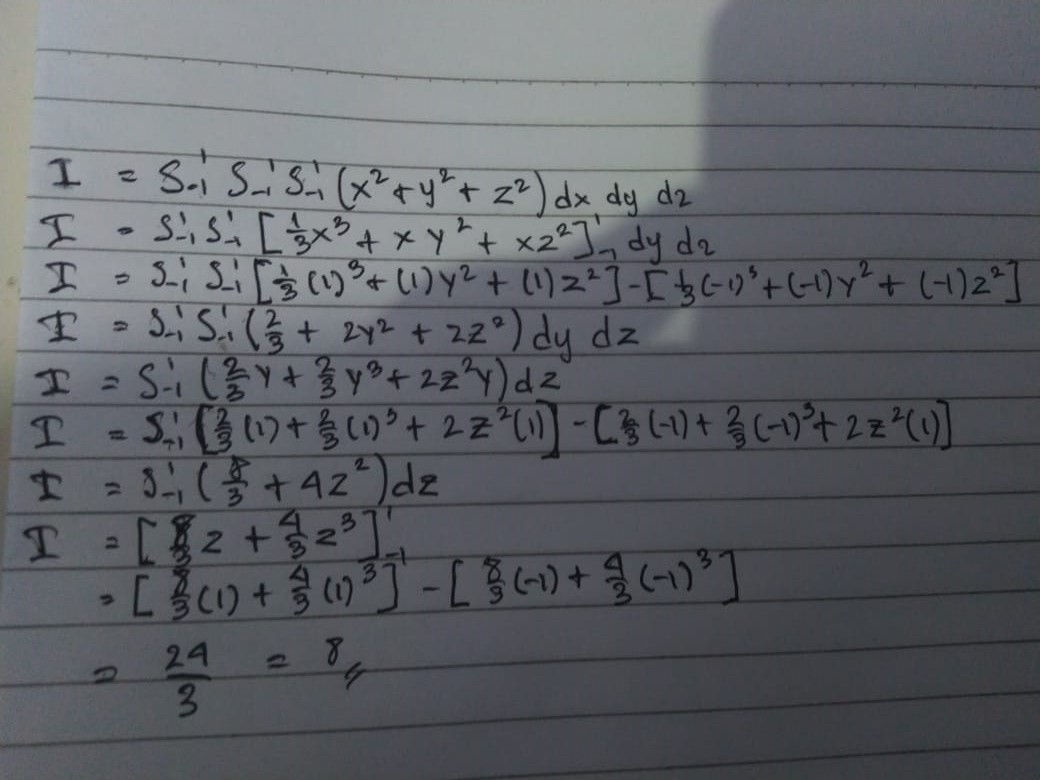 I = ∫₋₁¹ ∫₋₁¹ ∫₋₁¹ (x² + y² + z²) dx dy dz
I = ∫₋₁¹ ∫₋₁¹ [⅓x³ + xy² + xz²]₋₁¹ dy dz
I = ∫₋₁¹ ∫₋₁¹ [⅓(1)³ + (1)y² + (1)z²] - [⅓(-1)³ + (-1)y² + (-1)z²]
I = ∫₋₁¹ ∫₋₁¹ (⅔ + 2y² + 2z²) dy dz
I = ∫₋₁¹ (⅔y + ⅔y³ + 2z²y) dz
I = ∫₋₁¹ [⅔(1) + ⅔(1)³ + 2z²(1)] - [⅔(-1) + ⅔(-1)³ + 2z²(1)]
I = ∫₋₁¹ (8/3 + 4z²) dz
I = [8/3 z + 4/3 z³]₋₁¹
= [8/3 (1) + 4/3 (1)³] - [8/3 (-1) + 4/3 (-1)³]
= 24/3 = 8